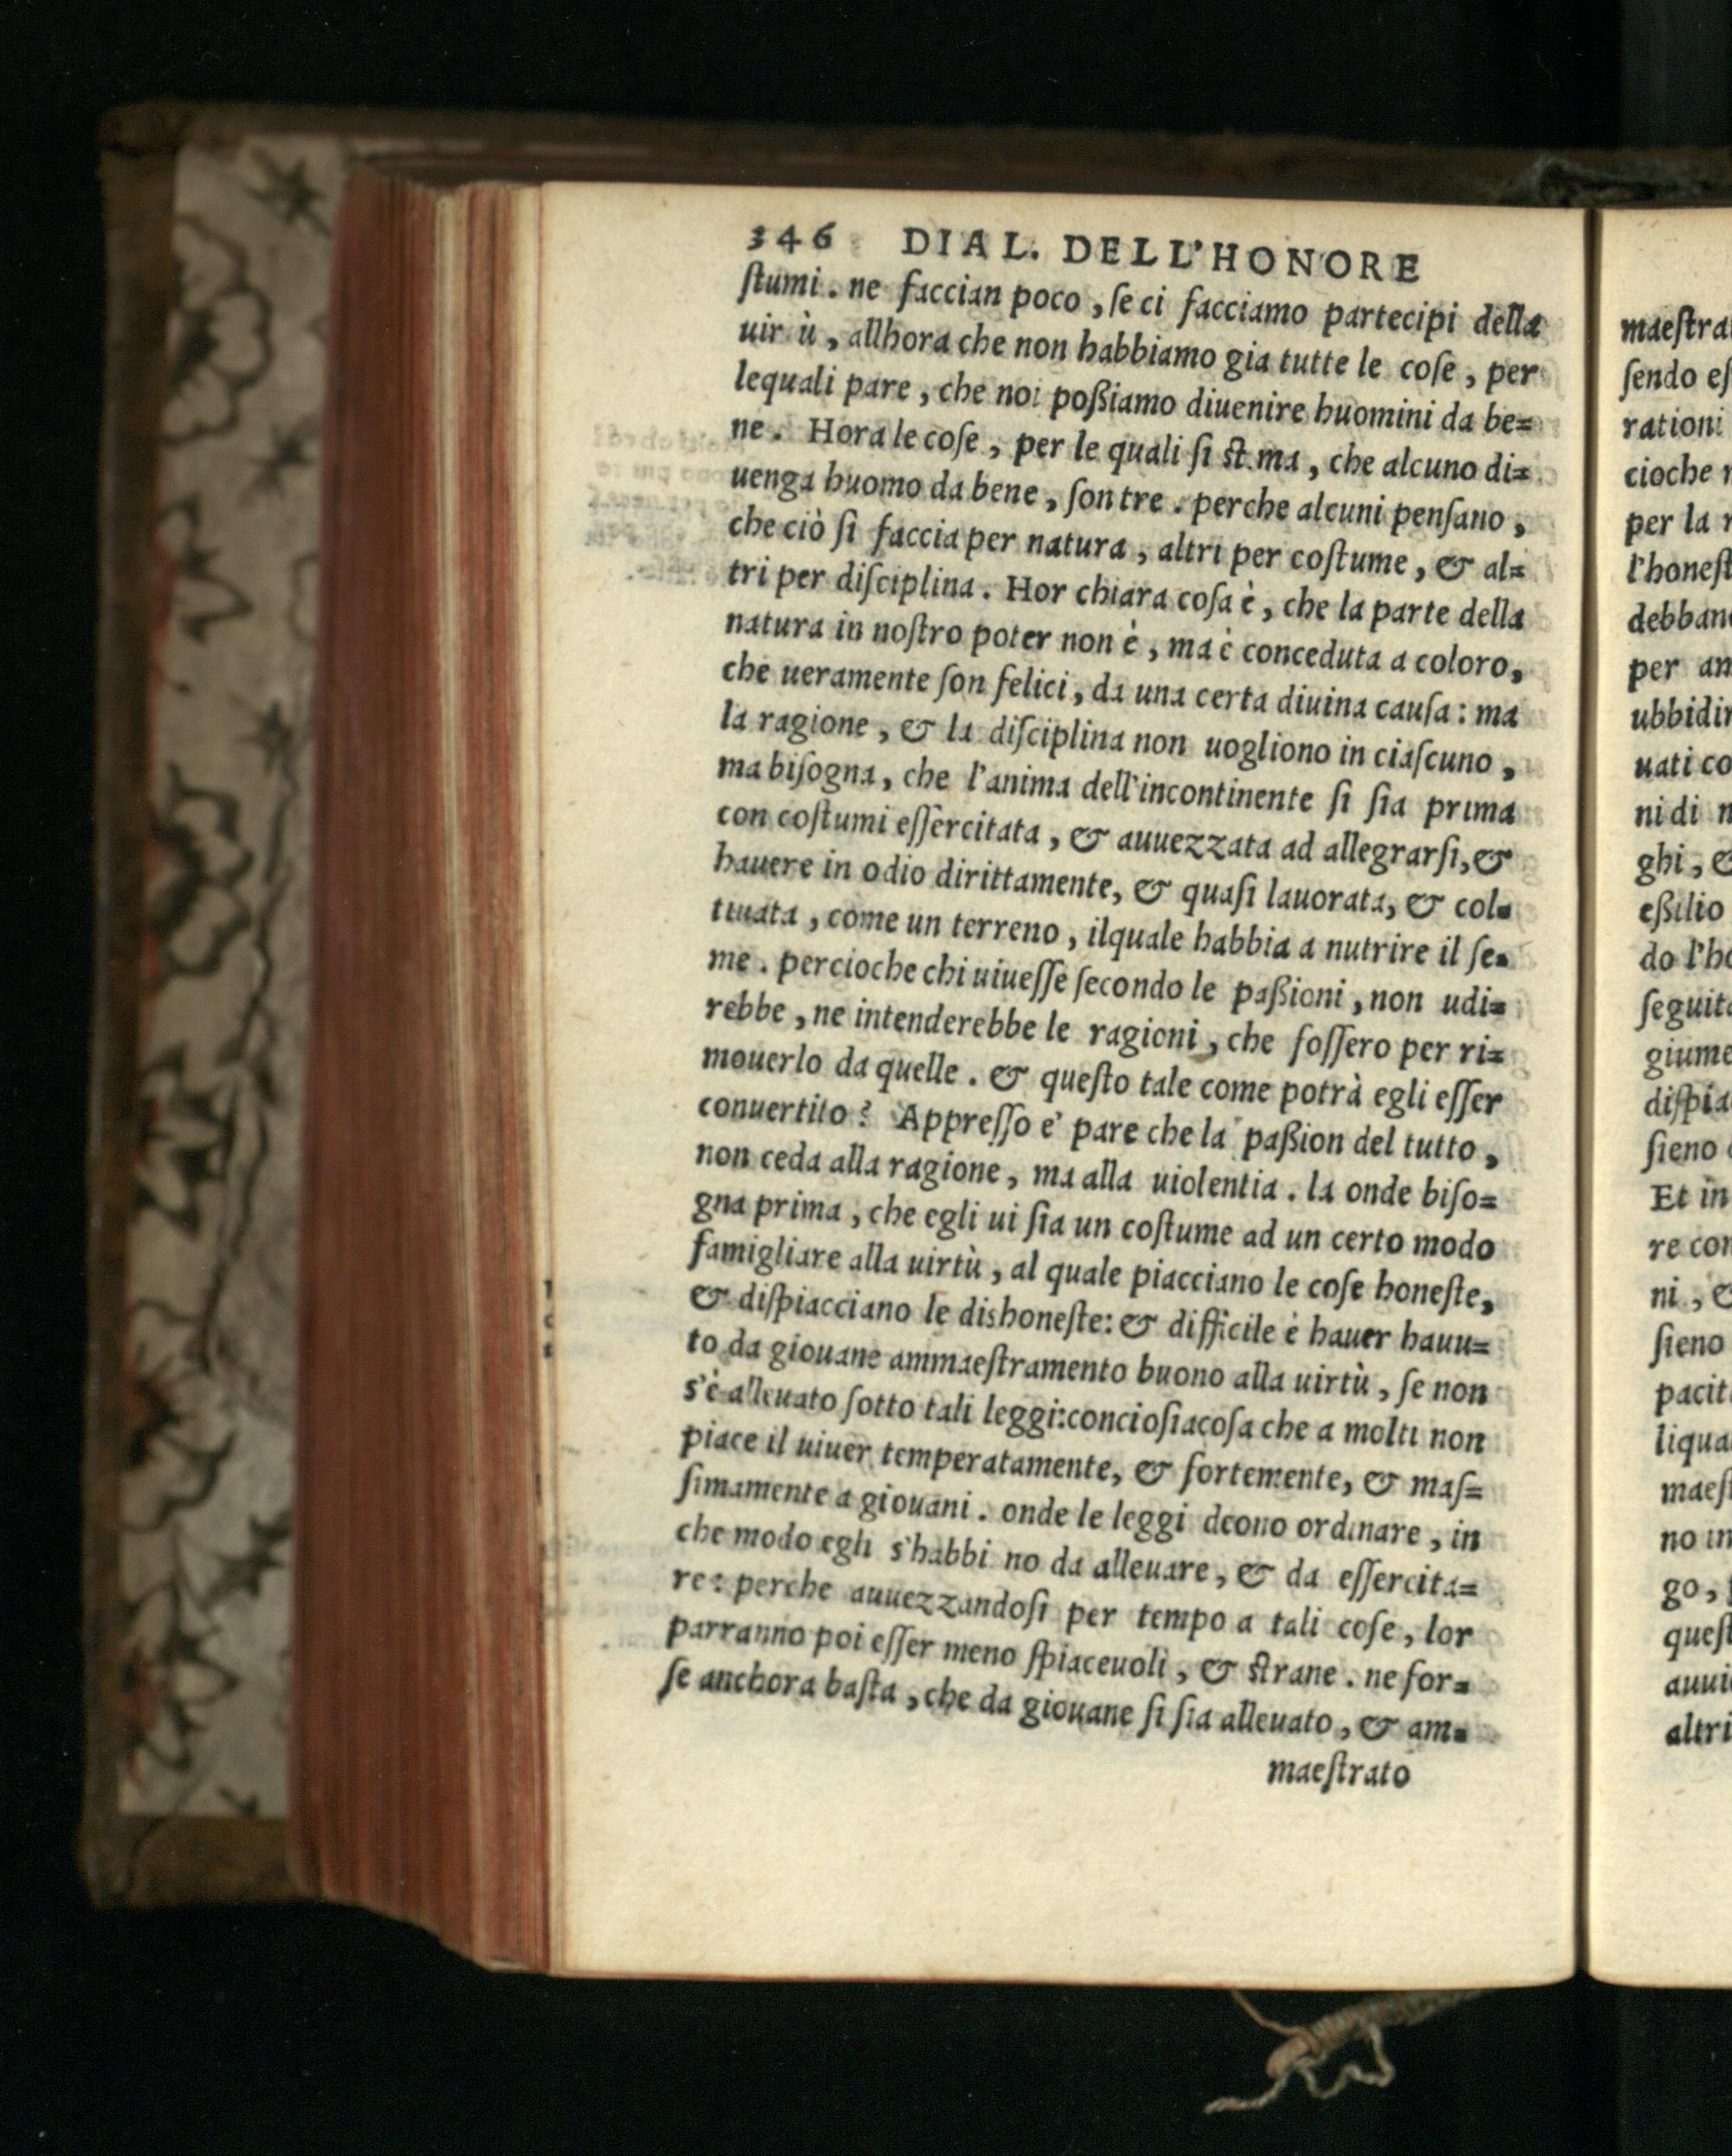 346 DIAL. DELL'HONORE
ſtumi. ne faccian poco, ſe ci facciamo partecipi della
uir ù, allhora che non habbiamo gia tutte le coſe, per
lequali pare, che noi poßiamo diuenire huomini da be=
ne. Hora le coſe, per le quali ſi ſt ma, che alcuno di=
uenga huomo da bene, ſon tre. perche alcuni penſano,
che ciò ſi faccia per natura, altri per coſtume, & al=
tri per diſciplina. Hor chiara coſa è, che la parte della
natura in noſtro poter non è, ma è conceduta a coloro,
che ueramente ſon felici, da una certa diuina cauſa: ma
la ragione, & la diſciplina non uogliono in ciaſcuno,
ma biſogna, che l'anima dell'incontinente ſi ſia prima
con coſtumi eſſercitata, & auuezzata ad allegrarſi, &
hauere in odio dirittamente, & quaſi lauorata, & col=
tiuata, come un terreno, ilquale habbia a nutrire il ſe=
me. percioche chi uiueſſe ſecondo le paßioni, non udi=
rebbe, ne intenderebbe le ragioni, che foſſero per ri=
mouerlo da quelle. & queſto tale come potrà egli eſſer
conuertito? Appreſſo e' pare che la paßion del tutto,
non ceda alla ragione, ma alla uiolentia. la onde biſo=
gna prima, che egli ui ſia un coſtume ad un certo modo
famigliare alla uirtù, al quale piacciano le coſe honeſte,
& diſpiacciano le dishoneſte: & difficile è hauer hauu=
to da giouane ammaeſtramento buono alla uirtù, ſe non
s'è alleuato ſotto tali leggi: concioſiacoſa che a molti non
piace il uiuer temperatamente, & fortemente, & maſ=
ſimamente a giouani. onde le leggi deono ordinare, in
che modo egli s'habbi no da alleuare, & da eſſercita=
re: perche auuezzandoſi per tempo a tali coſe, lor
parranno poi eſſer meno ſpiaceuoli, & ſtrane. ne for=
ſe anchora baſta, che da giouane ſi ſia alleuato, & am=
maeſtrato
maeſtra
ſendo eſ
rationi
cioche
per la
l'honeſt
debban
per am
ubbidir
uati co
ni di
ghi, &
eßilio
do l'ho
ſeguita
giume
diſpia
ſieno
Et in
re con
ni, &
ſieno
pacit
liqua
maeſ
no in
go,
queſt
auui
altri